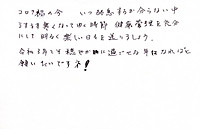 コロナ禍の今 いつ終息するか分らない中
うすら寒くなって行く時節 健康管理を充分
にして 明るく楽しい日々を送りましょう。
令和3年です 穏やかに過ごせる年になればと
願いたいですネ!